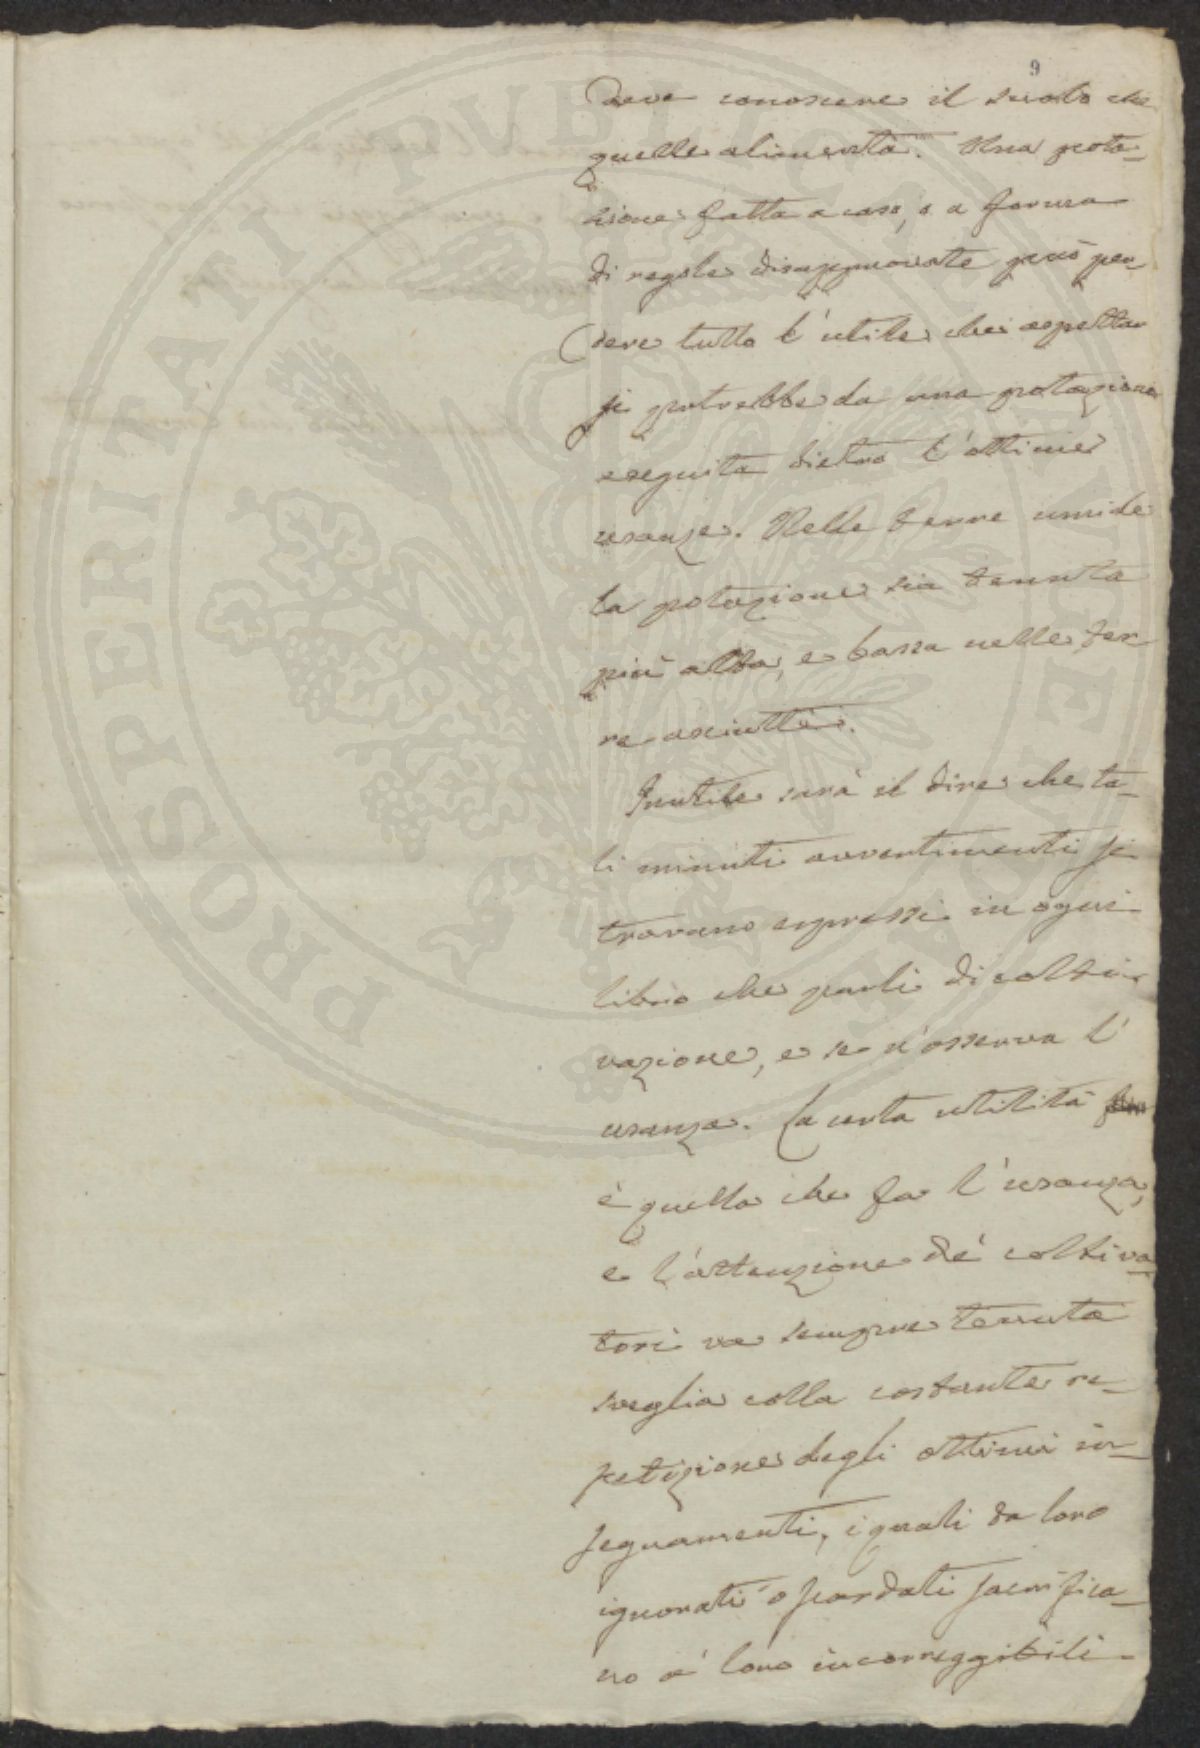 9
deve conoscere il suolo che
quelle alimenta. Una pota-
zione fatta a caso, o a forma
di regole disapprovate può per-
dere tutto l'utile che aspettar
si potrebbe da una potazione
eseguita dietro l'ottime
usanze. Nelle terre umide
la potazione sia tenuta
più alta, e bassa nelle ter-
re asciutte.
Inutile sarà il dire che ta-
li minuti avvertimenti si
trovano espressi in ogni
libro che parli di colti-
vazione, e se n'osserva l'
usanza. La certa utilità
è quella che fa l'usanza,
e l'attenzione de' coltiva-
tori va sempre tenuta
sveglia colla costante re-
petizione degli ottimi in-
segnamenti, i quali da loro
ignorati o scordati sacrifica-
no a' loro incorreggibili
PROSPERITATI PUBLICAE AUGENDAE